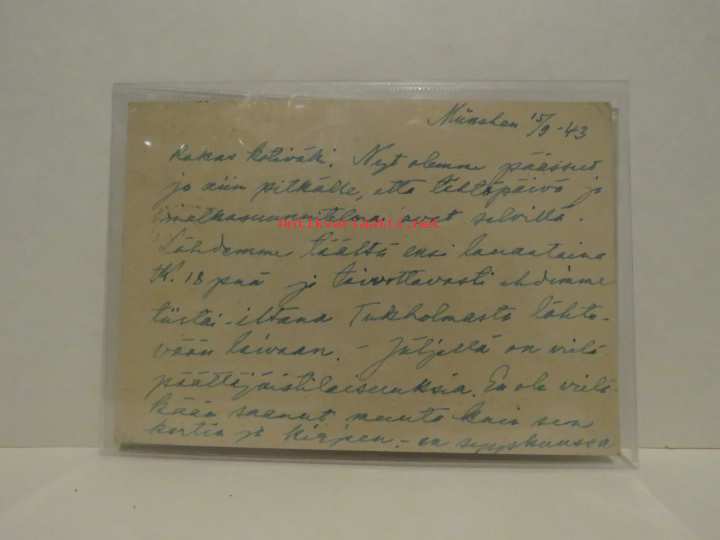 München 15/9 -43
Rakas kotiväki. Nyt olemme päässeet
jo niin pitkälle, että lähtöpäivä ja
matkasuunnitelma ovat selvillä.
Lähdemme täältä ensi lauantaina
tk. 18 pnä ja toivottavasti ehdimme
tiistai-iltana Tukholmasta lähte-
vään laivaan. - Jäljellä on vielä
päättäjäistilaisuuksia. En ole vielä-
kään saanut muuta kuin sen
kortin ja kirjeen - on syyskuussa